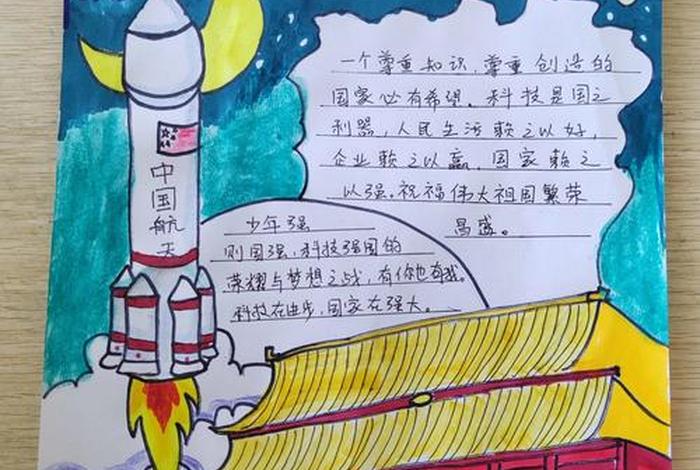 中
国
航
天
一个尊重知识,尊重创造的
国家必有希望。科技是国之
利器,人民生活赖之以好,
企业赖之以赢,国家赖之
以强。祝福伟大祖国繁荣
昌盛。
少年强
则国强,科技强国的
荣耀与梦想之战,有你也有我。
科技在进步,国家在强大。